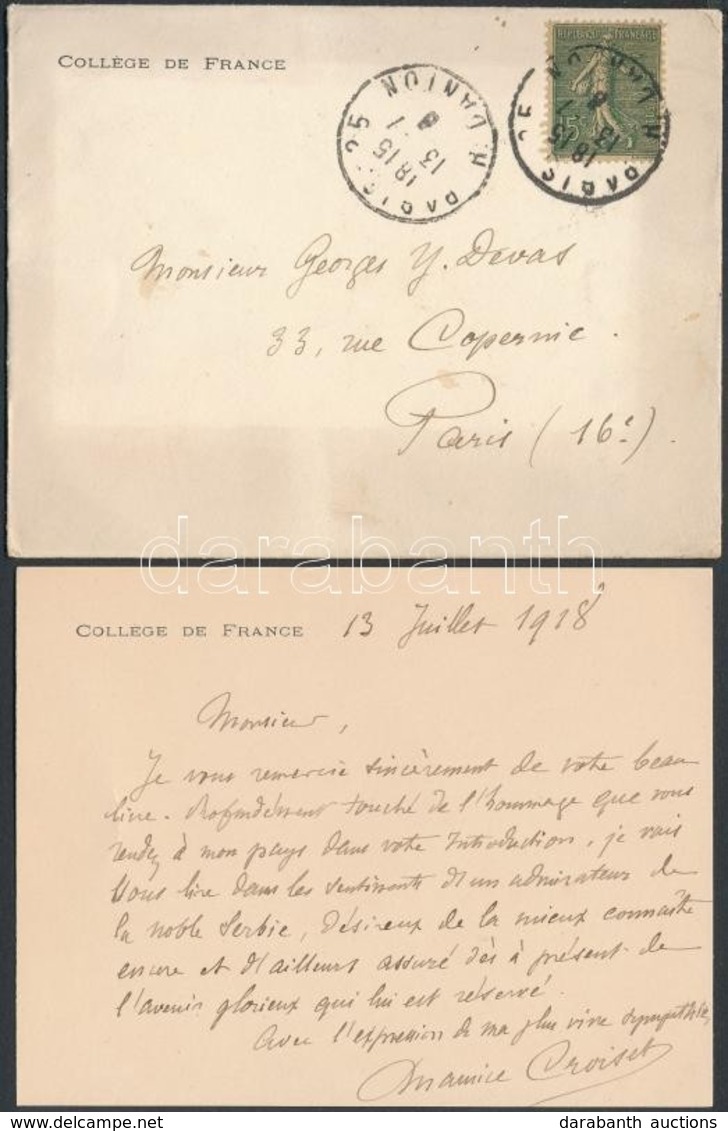 COLLÈGE DE FRANCE
RÉPUBLIQUE FRANÇAISE
15c
PARIS 25
R. DANTON
18 15
13 - 7
18
PARIS 25
R. DANTON
18 15
13 - 7
18
Monsieur Georges Y. Devas
33, rue Copernic.
Paris (16e).
darabanth
COLLÈGE DE FRANCE
13 Juillet 1918
Monsieur,
Je vous remercie sincèrement de votre beau
livre. Profondément touché de l'hommage que vous
rendez à mon pays dans votre Introduction, je vais
vous lire dans les sentiments d'un admirateur de
la noble Serbie, désireux de la mieux connaître
encore et d'ailleurs assuré dès à présent de
l'avenir glorieux qui lui est réservé.
Avec l'expression de ma plus vive sympathie,
Maurice Croiset
darabanth auctions